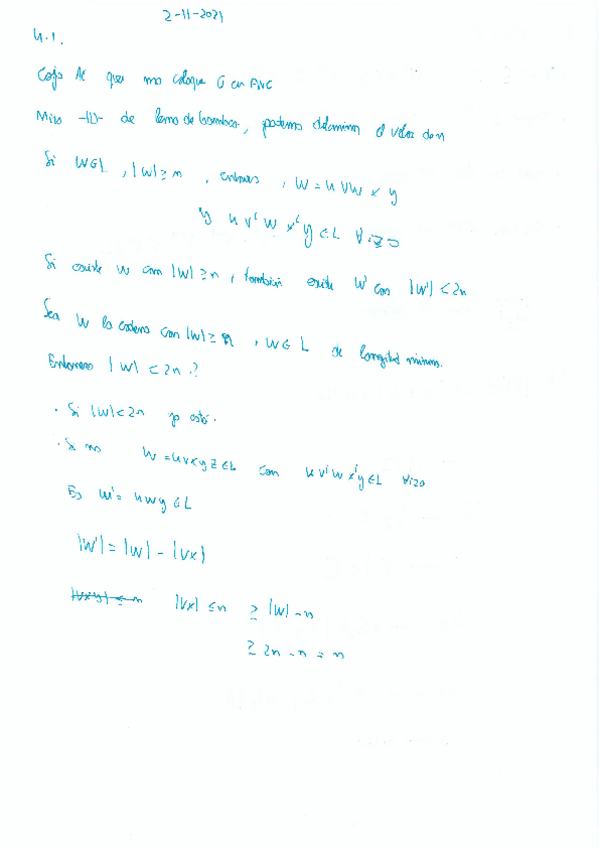 2-11-2021
4.1.
Cojo AC que me coloque G en FNC
Miro -||- de lema de bombeo, podemos determinar el valor de n
Si W∈L, |W|≥n, entonces, W = u v w x y
y u vⁱ w xⁱ y ∈ L ∀ i≥0
Si existe w con |W| ≥ n, también existe W' con |W'| < 2n
Sea W la cadena con |W| ≥ n, W∈ L de longitud mínima.
Entonces |W| < 2n ?
· Si |W|<2n ya está.
· Si no W = u v x y z ∈ L con u vⁱ w xⁱ y ∈ L ∀ i≥0
Es w' = u w y ∈ L
|W'| = |W| - |vx|
|vxy| ≤ n |vx| ≤ n ≥ |W| - n
≥ 2n - n = n